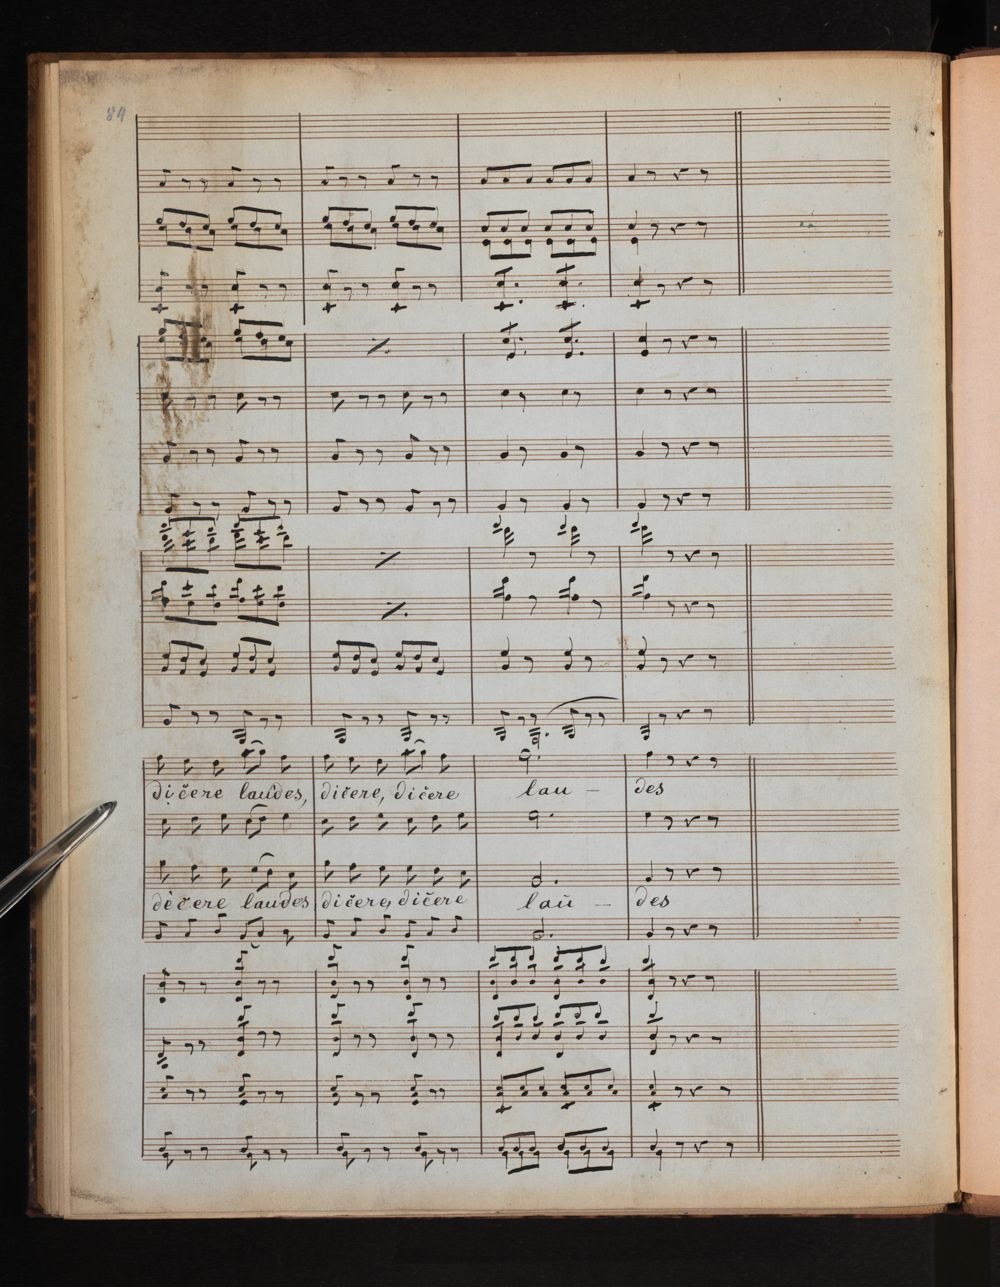 84
dičere laudes, dičere, dičere lau - des
dičere laudes dičere, dičere laū - des